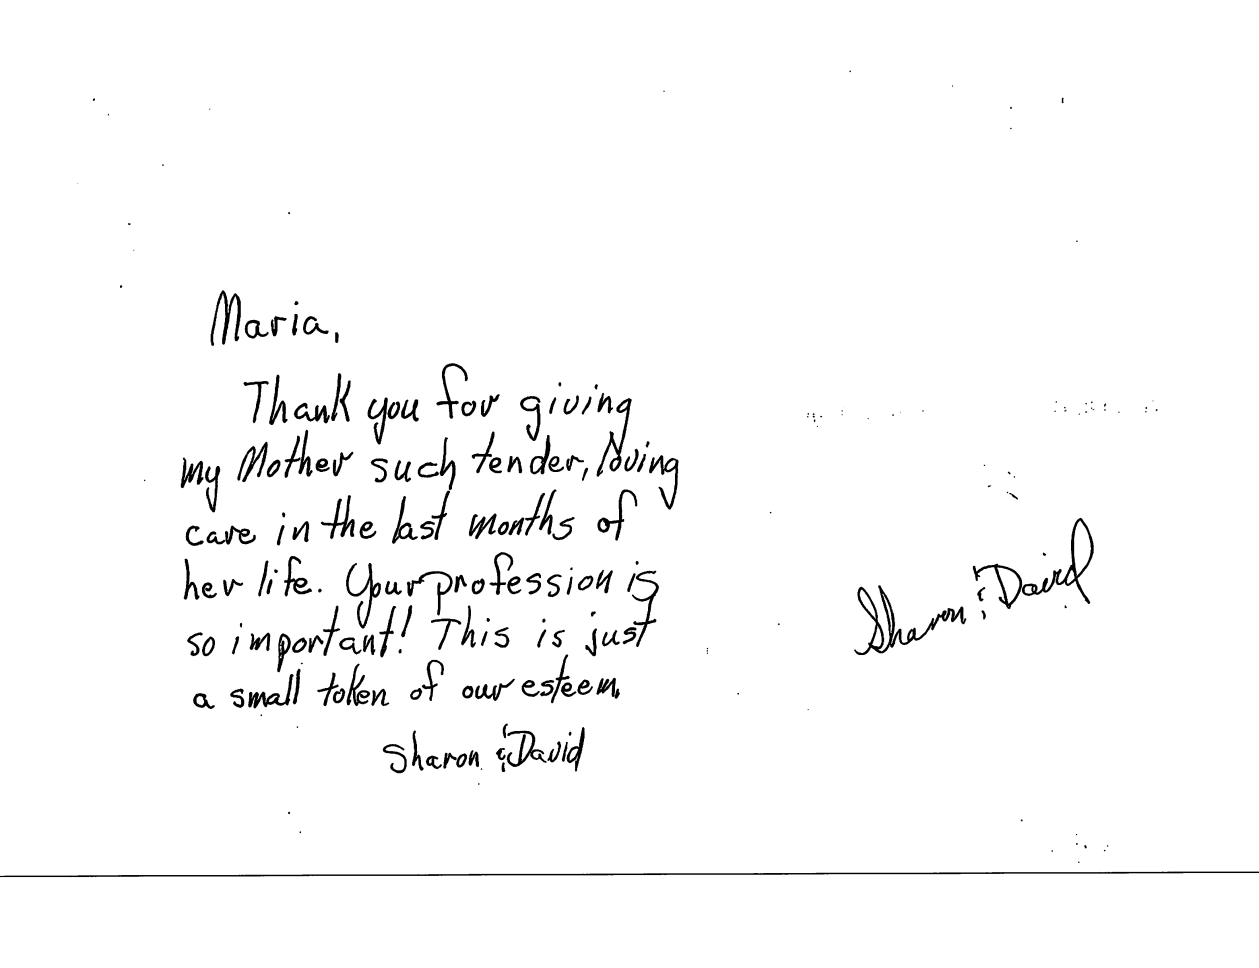 Maria,
Thank you for giving
my Mother such tender, loving
care in the last months of
her life. Your profession is
so important! This is just
a small token of our esteem.
Sharon & David
Sharon & David